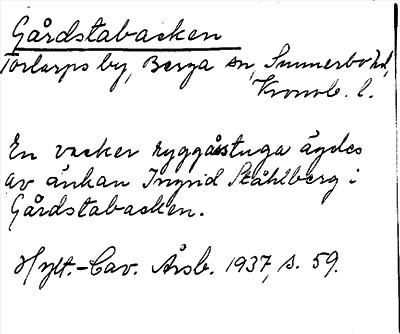 Gårdstabacken
Torlarps by, Berga sn, Sunnerbo hd,
Kronob. l.
En vacker ryggåsstuga ägdes
av änkan Ingrid Ståhlberg i
Gårdstabacken.
Hylt.-Cav. Årsb. 1937, s. 59.